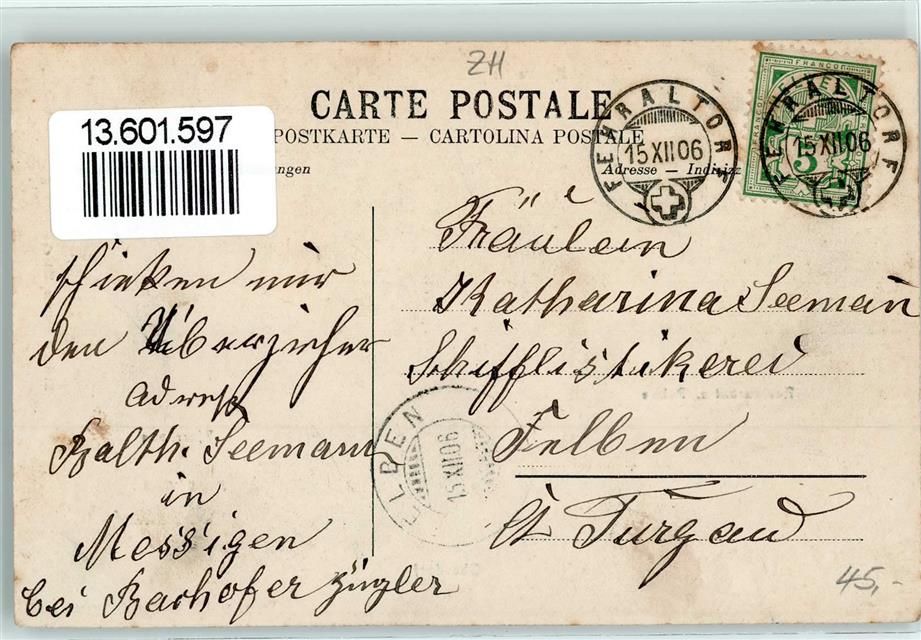 ZH
CARTE POSTALE
POSTKARTE — CARTOLINA POSTALE
13.601.597
ngen
Adresse — Indirizz
FRANCO
FEHRALTORF
15 XII 06
FEHRALTORF
15 XII 06
5
Fräulein
Katharina Seeman
Schifflistikerei
Felben
Ct Turgau
schicken mir
den Überzieher
Adress
Balth. Seemann
in
Messigen
bei Bachofer
FELBEN
15 XII 06
45,-